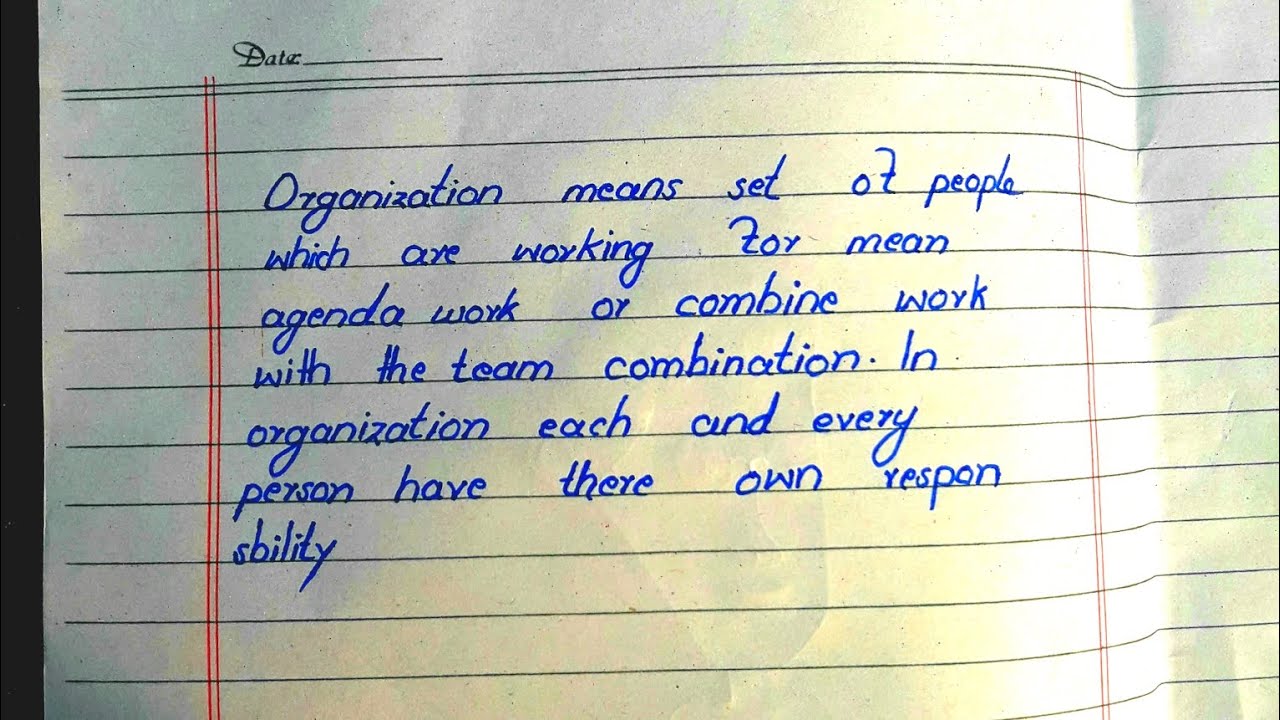 Date:
Organization means set of people
which are working for mean
agenda work or combine work
with the team combination. In
organization each and every
person have there own respon
sbility